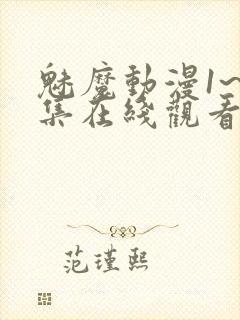 魅魔動漫1~
集在綫觀看
范瑾熙